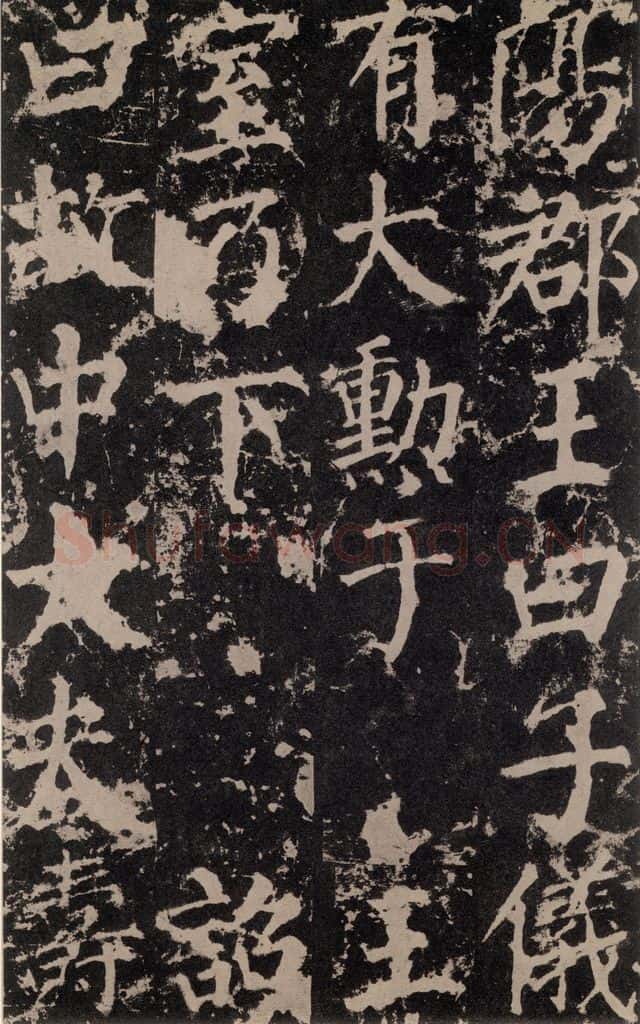 陽郡王曰子儀
有大勳于王
室乃下詔
曰故中大夫壽
Shufawang.CN